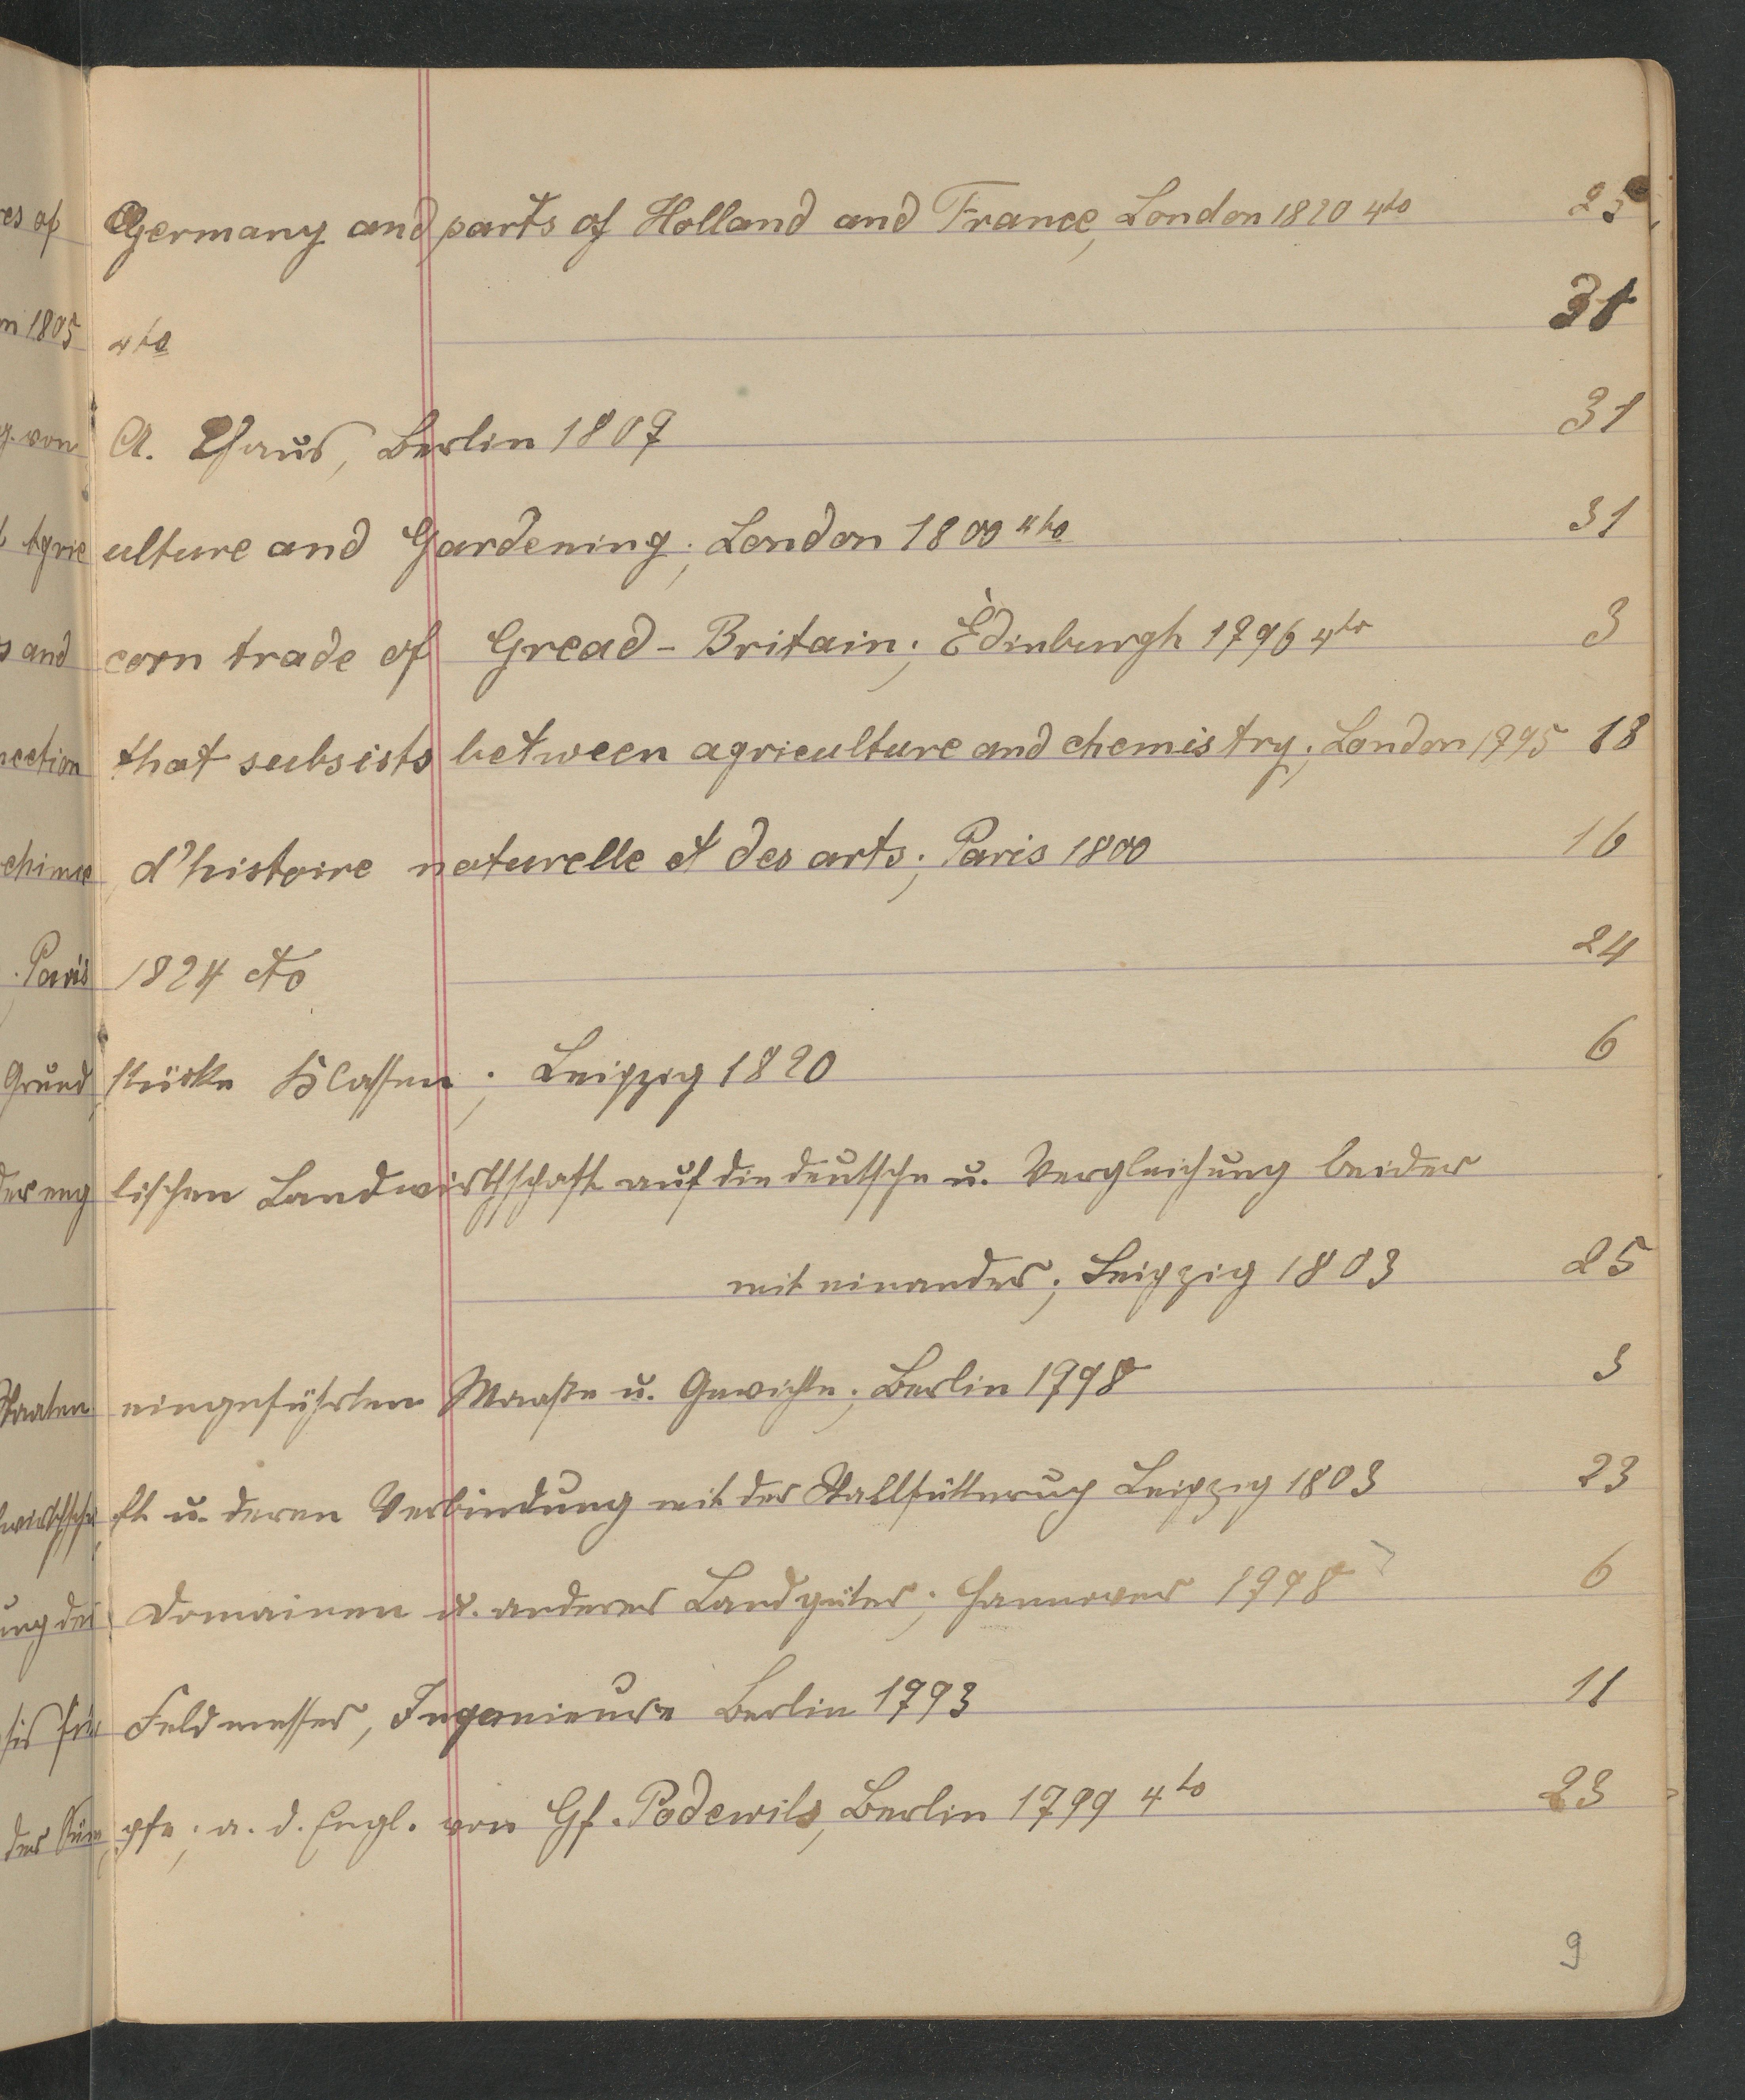 es of Germany and parts of Holland and France, London 1820 4to 23
n 1805 4to 31
g. von A. Thaer, Berlin 1807 31
Agric ulture and Gardening; London 1800 4to 31
s and corn trade of Gread-Britain; Edinburgh 1796 4to 3
nection that subsists between agriculture and chemistry; London 1795 18
chimie d'histoire naturelle et des arts; Paris 1800 16
. Paris 1824 24
Grund stücke Klassen; Leipzig 1820 6
der eng lischen Landwirthschaft auf die deutsche u. Vergleichung beider
mit einander; Leipzig 1803 25
Staaten eingeführten Maaße u. Gewichte; Berlin 1798 3
wirthscha ft u. deren Verbindung mit der Stallfütterung Leipzig 1803 23
ung der Domainen u. anderer Landgüter; Hannover 1798 6
sis für Feldmesser, Ingenieure Berlin 1793 11
der Süm pfe; a. d. Engl. von Gf. Podewils, Berlin 1799 4to 23
9